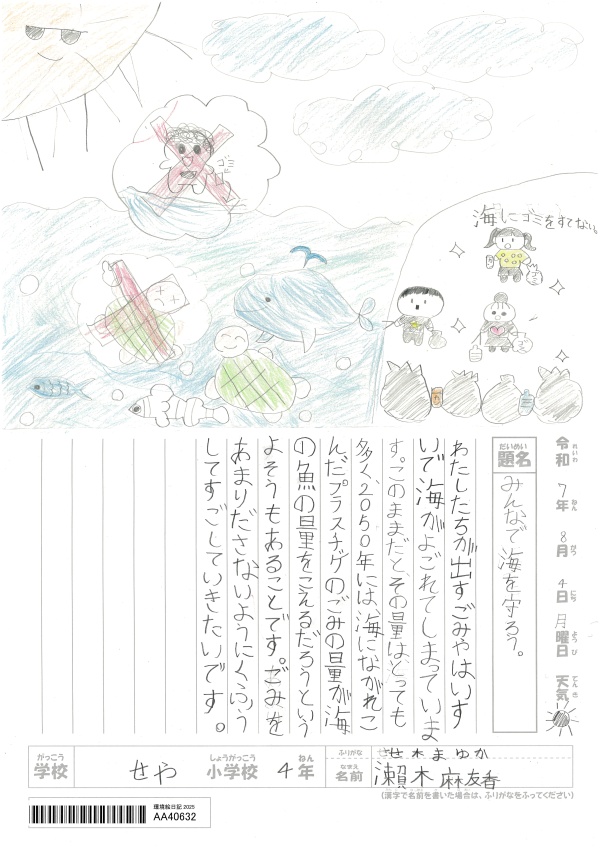 ゴミ
海にゴミをすてない。
令和7年8月4日月曜日 天気
れいわ ねん がつ にち ようび てんき
だいめい
題名
みんなで海を守ろう。
わたしたちが出すごみやはいす
いで海がよごれてしまっていま
す。このままだと、その量はとっても
多く、2050年には、海にながれこ
んだプラスチックのごみの量が海
の魚の量をこえるだろうという
よそうもあることです。ごみを
あまりださないようにくふう
してすごしていきたいです。
がっこう しょうがっこう ねん
学校 せや 小学校 4年
ふりがな まゆか
なまえ
名前 瀬木麻友香
(漢字で名前を書いた場合は、ふりがなをふってください)
環境絵日記2025
AA40632